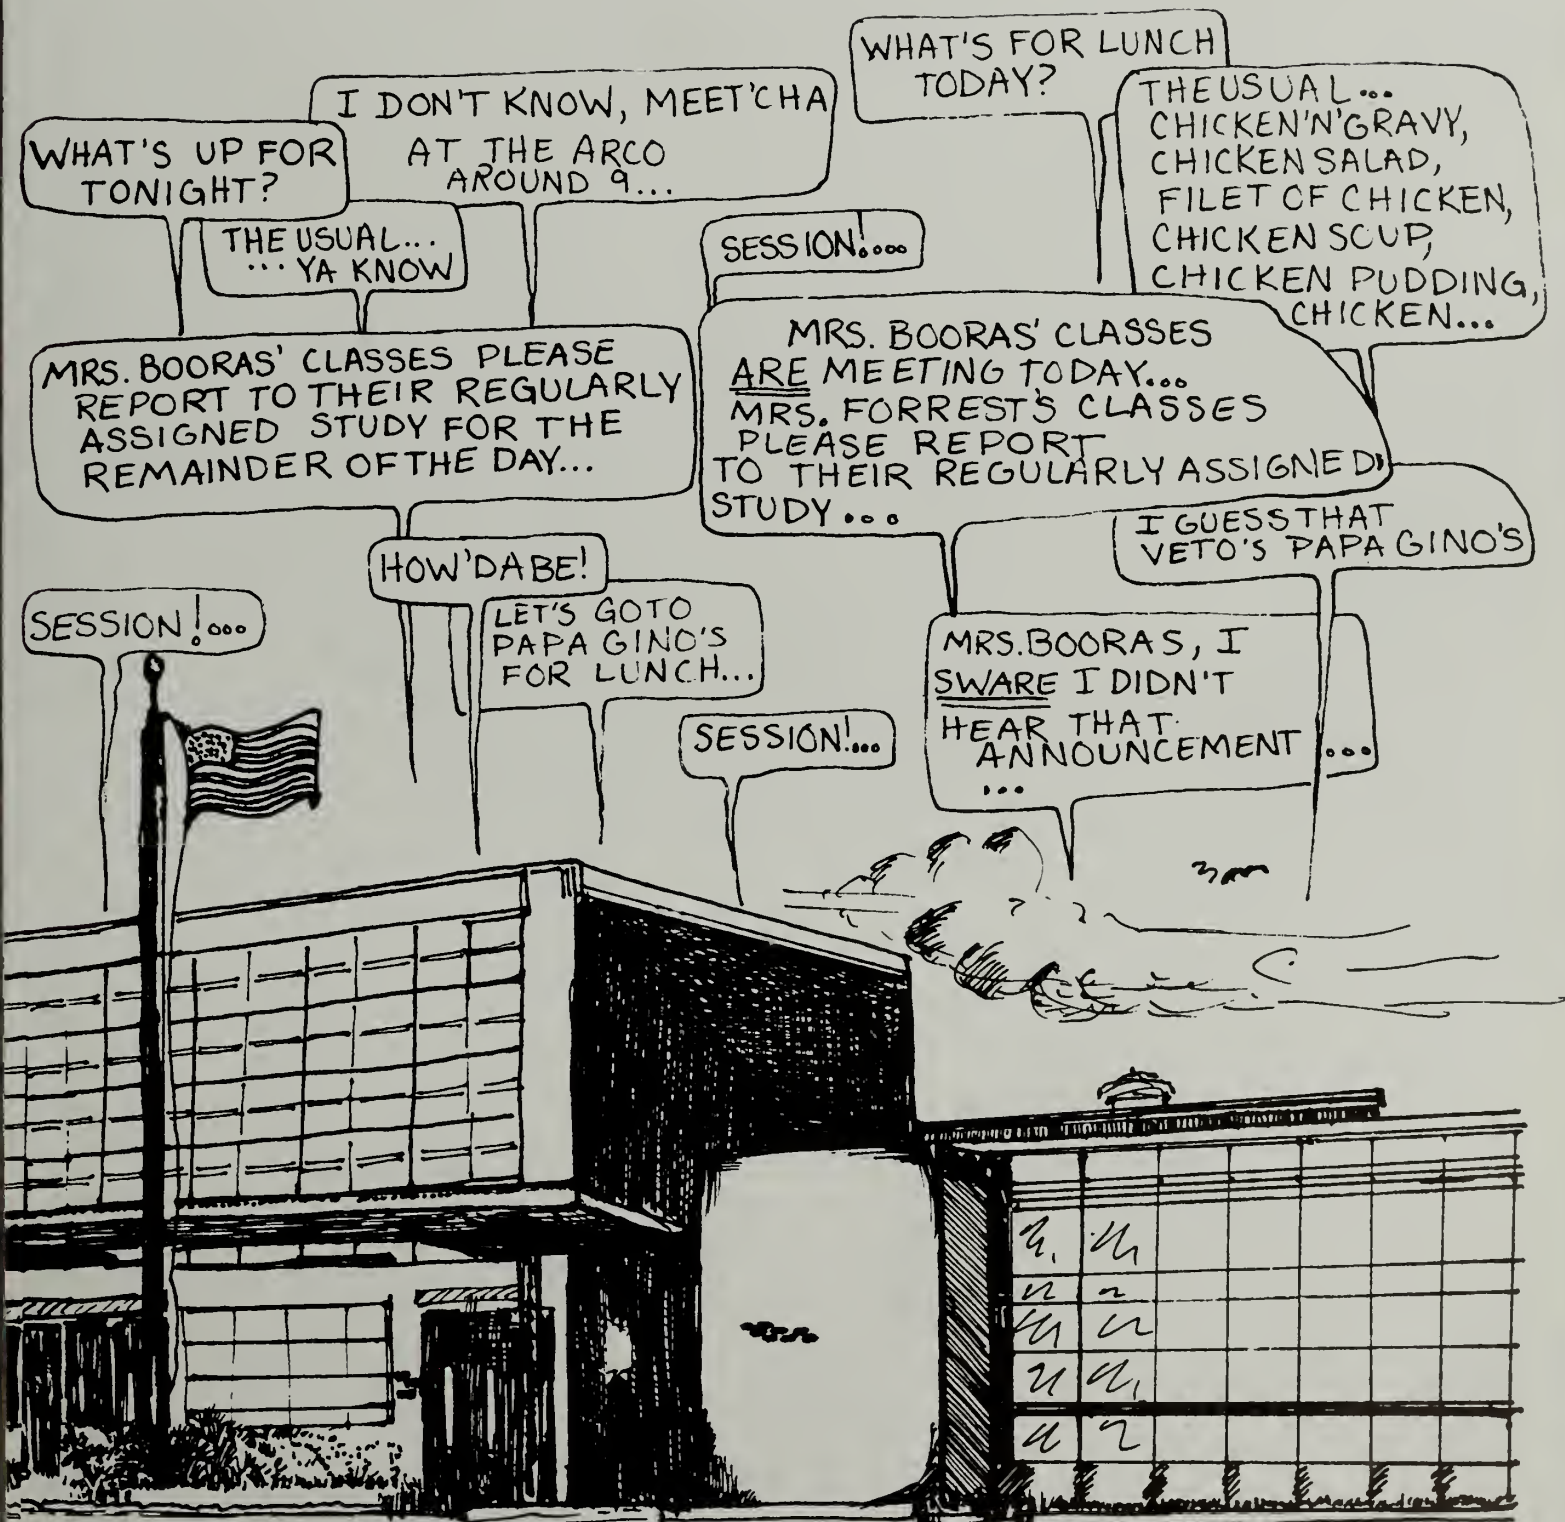 WHAT'S UP FOR
TONIGHT?
I DON'T KNOW, MEET'CHA
AT THE ARCO
AROUND 9...
THE USUAL...
... YA KNOW
WHAT'S FOR LUNCH
TODAY?
THE USUAL...
CHICKEN'N'GRAVY,
CHICKEN SALAD,
FILET OF CHICKEN,
CHICKEN SOUP,
CHICKEN PUDDING,
CHICKEN...
SESSION!....
MRS. BOORAS' CLASSES PLEASE
REPORT TO THEIR REGULARLY
ASSIGNED STUDY FOR THE
REMAINDER OF THE DAY...
MRS. BOORAS' CLASSES
ARE MEETING TODAY...
MRS. FORREST'S CLASSES
PLEASE REPORT
TO THEIR REGULARLY ASSIGNED
STUDY...
I GUESS THAT
VETO'S PAPA GINO'S
HOW'DABE!
LET'S GO TO
PAPA GINO'S
FOR LUNCH...
SESSION!...
SESSION!...
MRS. BOORAS, I
SWARE I DIDN'T
HEAR THAT
ANNOUNCEMENT
...
...